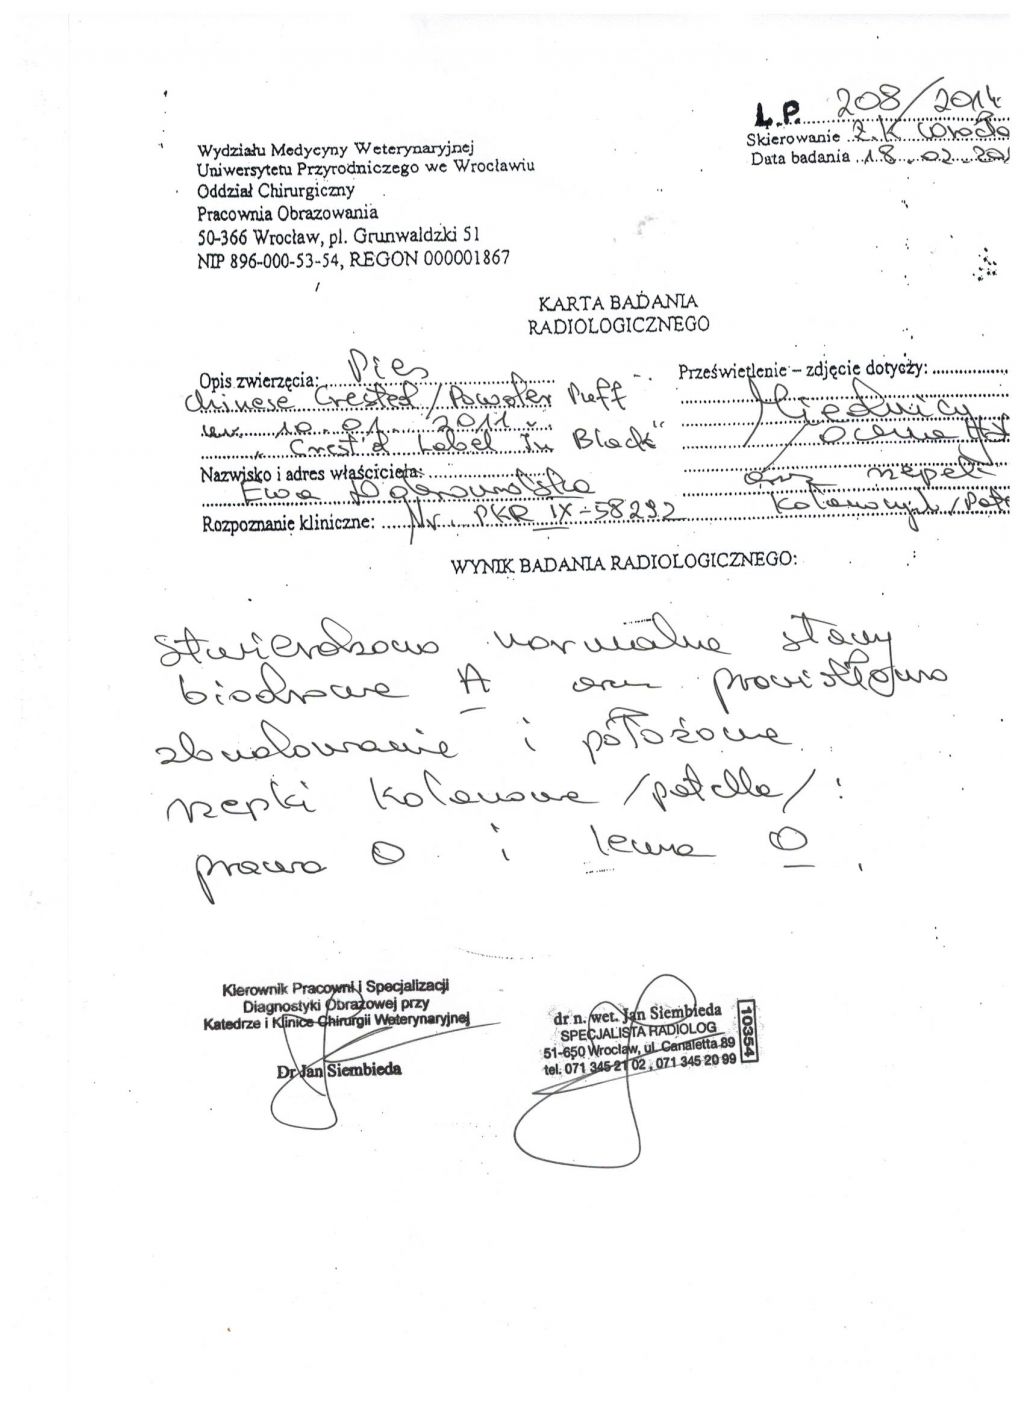 L.P. 208/2014
Skierowanie Z.K Wrocła
Data badania 18.02.201
Wydziału Medycyny Weterynaryjnej
Uniwersytetu Przyrodniczego we Wrocławiu
Oddział Chirurgiczny
Pracownia Obrazowania
50-366 Wrocław, pl. Grunwaldzki 51
NIP 896-000-53-54, REGON 000001867
KARTA BADANIA
RADIOLOGICZNEGO
Opis zwierzęcia: Pies
Chinese Crested / Powder Puff
ur. 10.01.2011
„Crest'd Label In Black"
Nazwisko i adres właściciela:
Ewa
Rozpoznanie kliniczne: Nr. PKR IX-58292
Prześwietlenie – zdjęcie dotyczy:
Miednicy
/ocena
oraz rzepek
kolanowych /Pat
WYNIK BADANIA RADIOLOGICZNEGO:
stwierdzono normalne stawy
biodrowe A oraz prawidłowo
zbudowanie i położone
rzepki kolanowe /patella/:
prawa 0 i lewa 0.
Kierownik Pracowni i Specjalizacji
Diagnostyki Obrazowej przy
Katedrze i Klinice Chirurgii Weterynaryjnej
Dr Jan Siembieda
dr n. wet. Jan Siembieda
SPECJALISTA RADIOLOG
51-650 Wrocław, ul. Canaletta 89
tel. 071 345 21 02, 071 345 20 99
10354